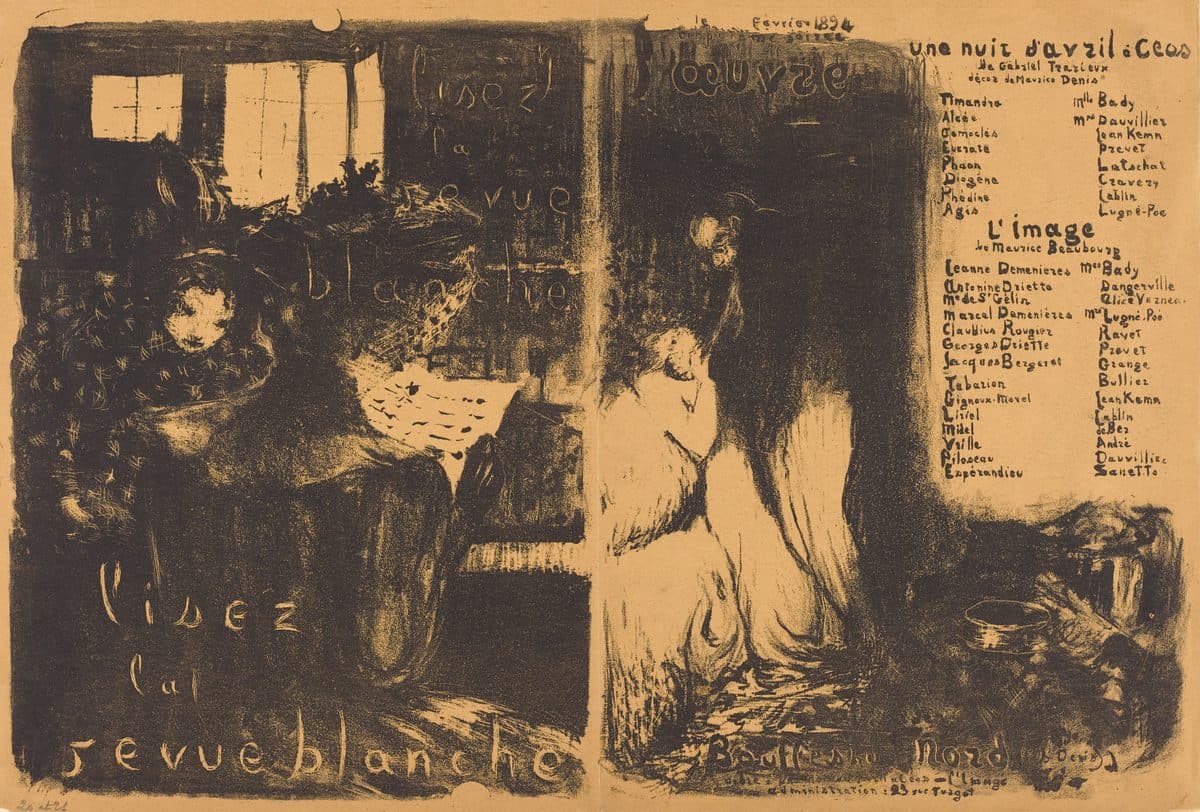 lisez
la
revue
blanche
lisez
la
revue blanche
février 1894
œuvre
une nuit d'avril à Ceos
de Gabriel Trarieux
décor de Maurice Denis
Timandra Mlle Bady
Alcée Mme Dauvillier
Démoclès Jean Kemn
Eucrate Prevet
Phaon Latschat
Diogène Cravery
Phédine Lablin
Agis Lugné-Poe
L'image
de Maurice Beaubourg
Jeanne Demenières Mes Bady
Antonine Driette Dangerville
Me de St Gélin Alice Verneau
Marcel Demenières Mrs Lugné-Poë
Claudius Rougier Ravet
Georges Driette Prevet
Jacques Bergeret Grange
Tabarion Bullier
Gignoux-Morel Jean Kemn
Liziel Lablin
Midel de Bez
Vrille André
Piloseau Dauvillier
Espérandieu Sanetto
Bouffes du Nord
l'Image
administration : 23 rue Turgot
20 et 21